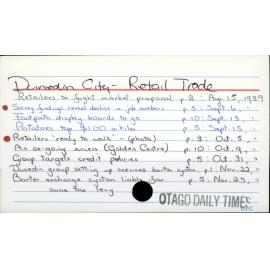 Dunedin City - Retail Trade
Retailers to fight market proposal p.2: Aug. 15, 1989
Survey findings reveal decline in job numbers p.5: Sept. 6, "
Footpath display boards to go p.10: Sept. 13, "
Potatoes top $100 a kilo p.5: Sept. 15, "
Retailers 'ready to walk' - (photo) p.3: Oct. 5, "
An on-going success (Golden Centre) p.10: Oct. 9, "
Group targets credit policies p.5: Oct. 31, "
Dunedin group setting up services barter system p.1: Nov. 22, "
Barter exchange system liable for p.5: Nov. 23, "
same tax levy
OTAGO DAILY TIMES